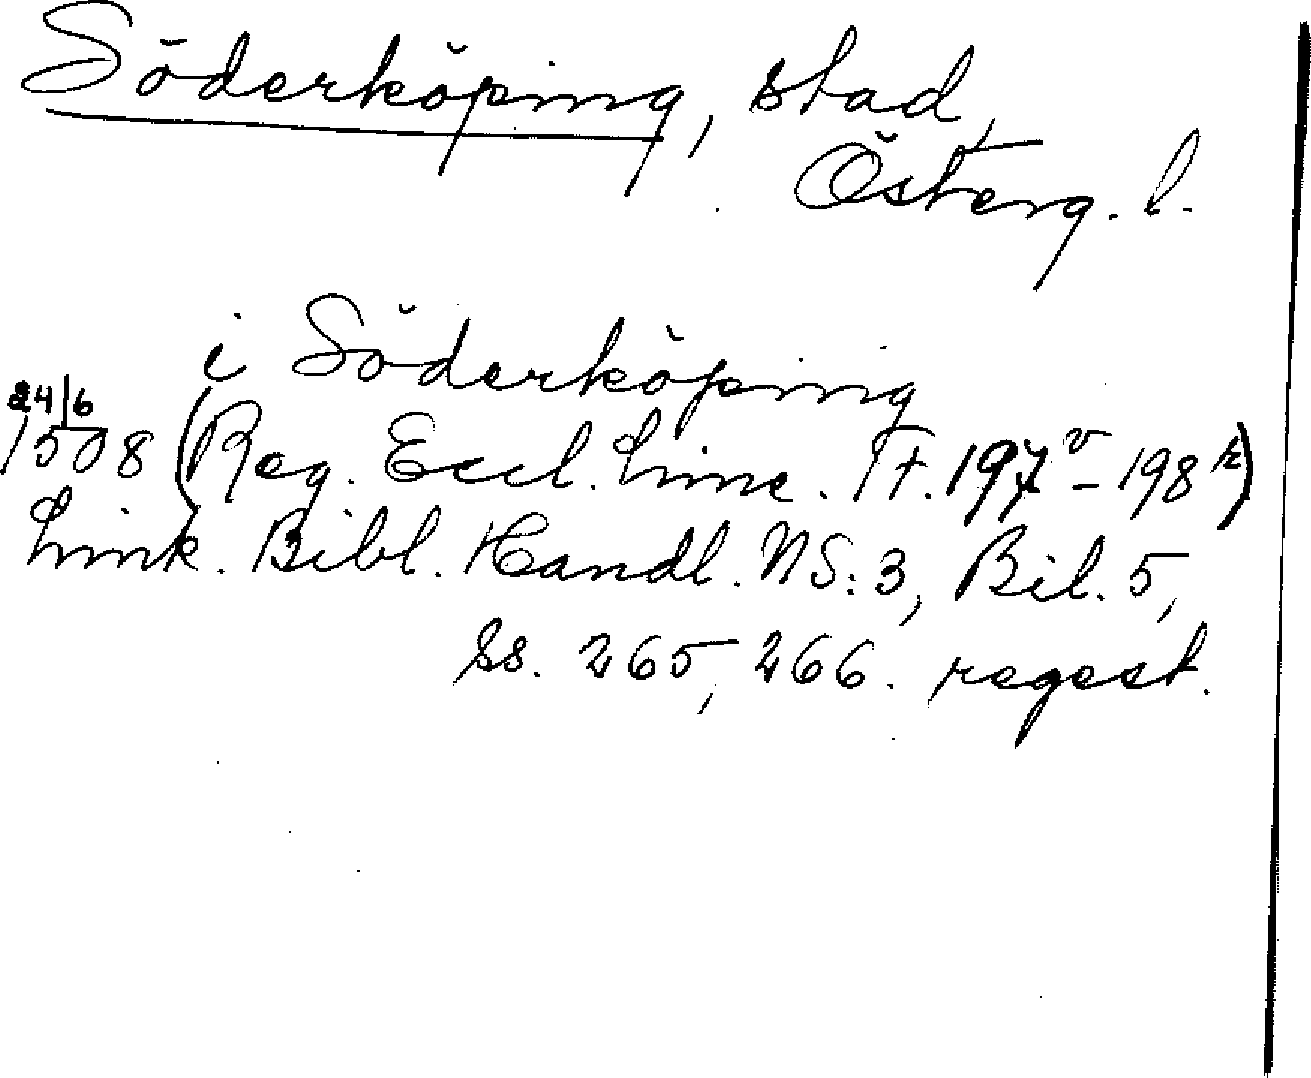 Söderköping, stad,
Österg. l.
i Söderköping
24/6
1508 (Reg. Eccl. Linc. Ff. 197v-198r)
Link. Bibl. Handl. NS:3, Bil. 5,
ss. 265, 266. regest.